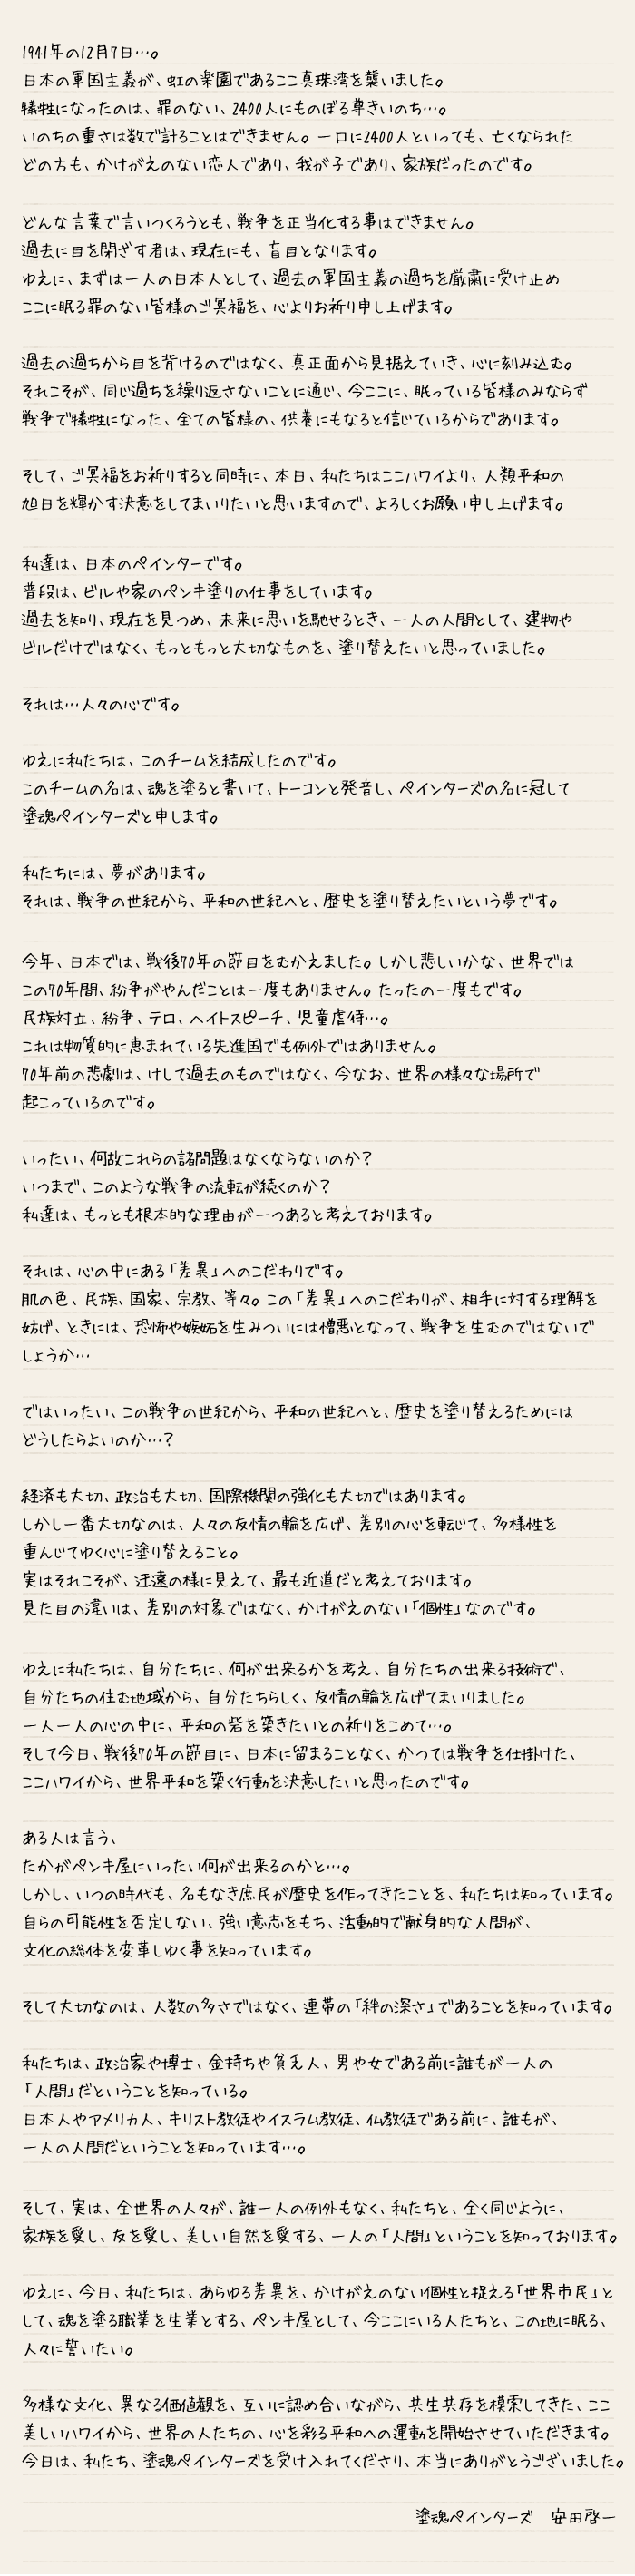 1941年の12月7日…。
日本の軍国主義が、虹の楽園であるここ真珠湾を襲いました。
犠牲になったのは、罪のない、2400人にものぼる尊きいのち…。
いのちの重さは数で計ることはできません。一口に2400人といっても、亡くなられた
どの方も、かけがえのない恋人であり、我が子であり、家族だったのです。
どんな言葉で言いつくろうとも、戦争を正当化する事はできません。
過去に目を閉ざす者は、現在にも、盲目となります。
ゆえに、まずは一人の日本人として、過去の軍国主義の過ちを厳粛に受け止め
ここに眠る罪のない皆様のご冥福を、心よりお祈り申し上げます。
過去の過ちから目を背けるのではなく、真正面から見据えていき、心に刻み込む。
それこそが、同じ過ちを繰り返さないことに通じ、今ここに、眠っている皆様のみならず
戦争で犠牲になった、全ての皆様の、供養にもなると信じているからであります。
そして、ご冥福をお祈りすると同時に、本日、私たちはここハワイより、人類平和の
旭日を輝かす決意をしてまいりたいと思いますので、よろしくお願い申し上げます。
私達は、日本のペインターです。
普段は、ビルや家のペンキ塗りの仕事をしています。
過去を知り、現在を見つめ、未来に思いを馳せるとき、一人の人間として、建物や
ビルだけではなく、もっともっと大切なものを、塗り替えたいと思っていました。
それは…人々の心です。
ゆえに私たちは、このチームを結成したのです。
このチームの名は、魂を塗ると書いて、トーコンと発音し、ペインターズの名に冠して
塗魂ペインターズと申します。
私たちには、夢があります。
それは、戦争の世紀から、平和の世紀へと、歴史を塗り替えたいという夢です。
今年、日本では、戦後70年の節目をむかえました。しかし悲しいかな、世界では
この70年間、紛争がやんだことは一度もありません。たったの一度もです。
民族対立、紛争、テロ、ヘイトスピーチ、児童虐待…。
これは物質的に恵まれている先進国でも例外ではありません。
70年前の悲劇は、けして過去のものではなく、今なお、世界の様々な場所で
起こっているのです。
いったい、何故これらの諸問題はなくならないのか？
いつまで、このような戦争の流転が続くのか？
私達は、もっとも根本的な理由が一つあると考えております。
それは、心の中にある「差異」へのこだわりです。
肌の色、民族、国家、宗教、等々。この「差異」へのこだわりが、相手に対する理解を
妨げ、ときには、恐怖や嫉妬を生みついには憎悪となって、戦争を生むのではないで
しょうか…
ではいったい、この戦争の世紀から、平和の世紀へと、歴史を塗り替えるためには
どうしたらよいのか…？
経済も大切、政治も大切、国際機関の強化も大切ではあります。
しかし一番大切なのは、人々の友情の輪を広げ、差別の心を転じて、多様性を
重んじてゆく心に塗り替えること。
実はそれこそが、迂遠の様に見えて、最も近道だと考えております。
見た目の違いは、差別の対象ではなく、かけがえのない「個性」なのです。
ゆえに私たちは、自分たちに、何が出来るかを考え、自分たちの出来る技術で、
自分たちの住む地域から、自分たちらしく、友情の輪を広げてまいりました。
一人一人の心の中に、平和の砦を築きたいとの祈りをこめて…。
そして今日、戦後70年の節目に、日本に留まることなく、かつては戦争を仕掛けた、
ここハワイから、世界平和を築く行動を決意したいと思ったのです。
ある人は言う、
たかがペンキ屋にいったい何が出来るのかと…。
しかし、いつの時代も、名もなき庶民が歴史を作ってきたことを、私たちは知っています。
自らの可能性を否定しない、強い意志をもち、活動的で献身的な人間が、
文化の総体を変革しゆく事を知っています。
そして大切なのは、人数の多さではなく、連帯の「絆の深さ」であることを知っています。
私たちは、政治家や博士、金持ちや貧乏人、男や女である前に誰もが一人の
「人間」だということを知っている。
日本人やアメリカ人、キリスト教徒やイスラム教徒、仏教徒である前に、誰もが、
一人の人間だということを知っています…。
そして、実は、全世界の人々が、誰一人の例外もなく、私たちと、全く同じように、
家族を愛し、友を愛し、美しい自然を愛する、一人の「人間」ということを知っております。
ゆえに、今日、私たちは、あらゆる差異を、かけがえのない個性と捉える「世界市民」と
して、魂を塗る職業を生業とする、ペンキ屋として、今ここにいる人たちと、この地に眠る、
人々に誓いたい。
多様な文化、異なる価値観を、互いに認め合いながら、共生共存を模索してきた、ここ
美しいハワイから、世界の人たちの、心を彩る平和への運動を開始させていただきます。
今日は、私たち、塗魂ペインターズを受け入れてくださり、本当にありがとうございました。
塗魂ペインターズ　安田啓一